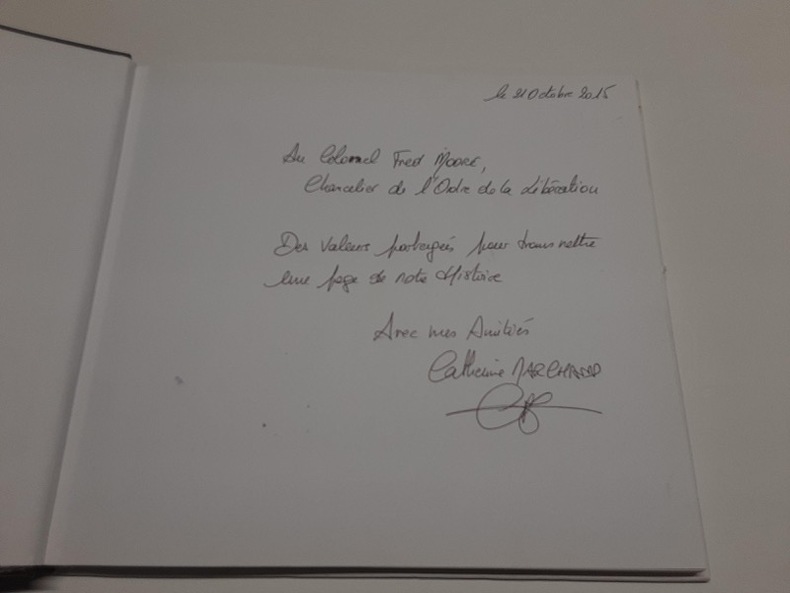 le 21 Octobre 2015
Au Colonel Fred Moore,
Chancelier de l'Ordre de la Libération
Des valeurs partagées pour transmettre
une page de notre Histoire
Avec mes Amitiés
Catherine MARCHAND